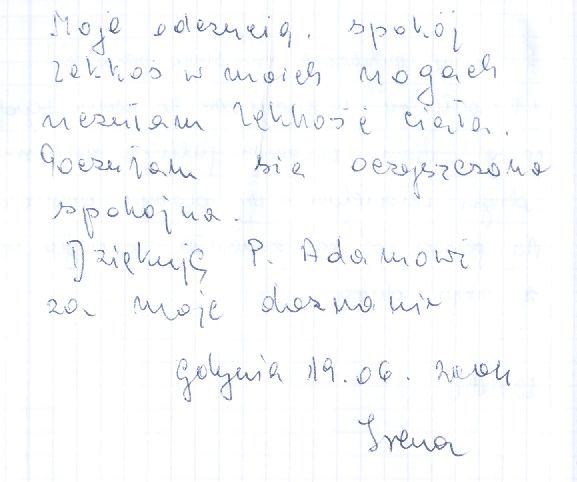 Moje odczucia. spokój
lekkoś w moich nogach
uczułam lękkość ciała.
Poczułam się oczyszczona
spokojna.
Dziękuję P. Adamowi
za moje doznanie
Gdynia 19.06.2004
Irena